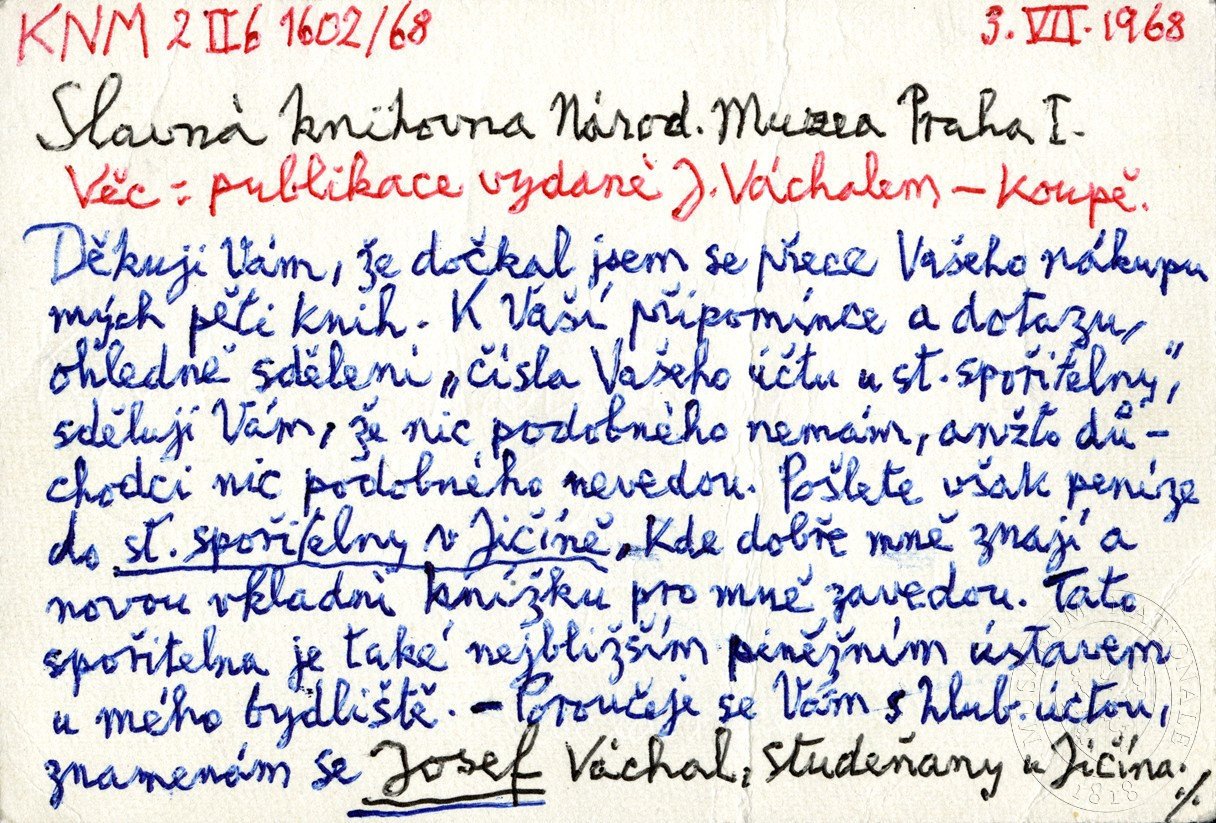 KNM 2 II6 1602/68 3. VII. 1968
Slavná knihovna Národ. Muzea Praha I.
Věc = publikace vydané J. Váchalem – Koupě.
Děkuji Vám, že dočkal jsem se přece Vašeho nákupu
mých pěti knih. K Vaší připomínce a dotazu,
ohledně sdělení „čísla Vašeho účtu u st. spořitelny",
sděluji Vám, že nic podobného nemám, anžto dů-
chodci nic podobného nevedou. Pošlete však peníze
do st. spořitelny v Jičíně, kde dobře mně znají a
novou vkladní knížku pro mně zavedou. Tato
spořitelna je také nejbližším peněžním ústavem
u mého bydliště. – Poroučeje se Vám s hlub. úctou,
znamenám se Josef Váchal, Studeňany u Jičína. ./.
MUSAEUM NATIONALE
1818